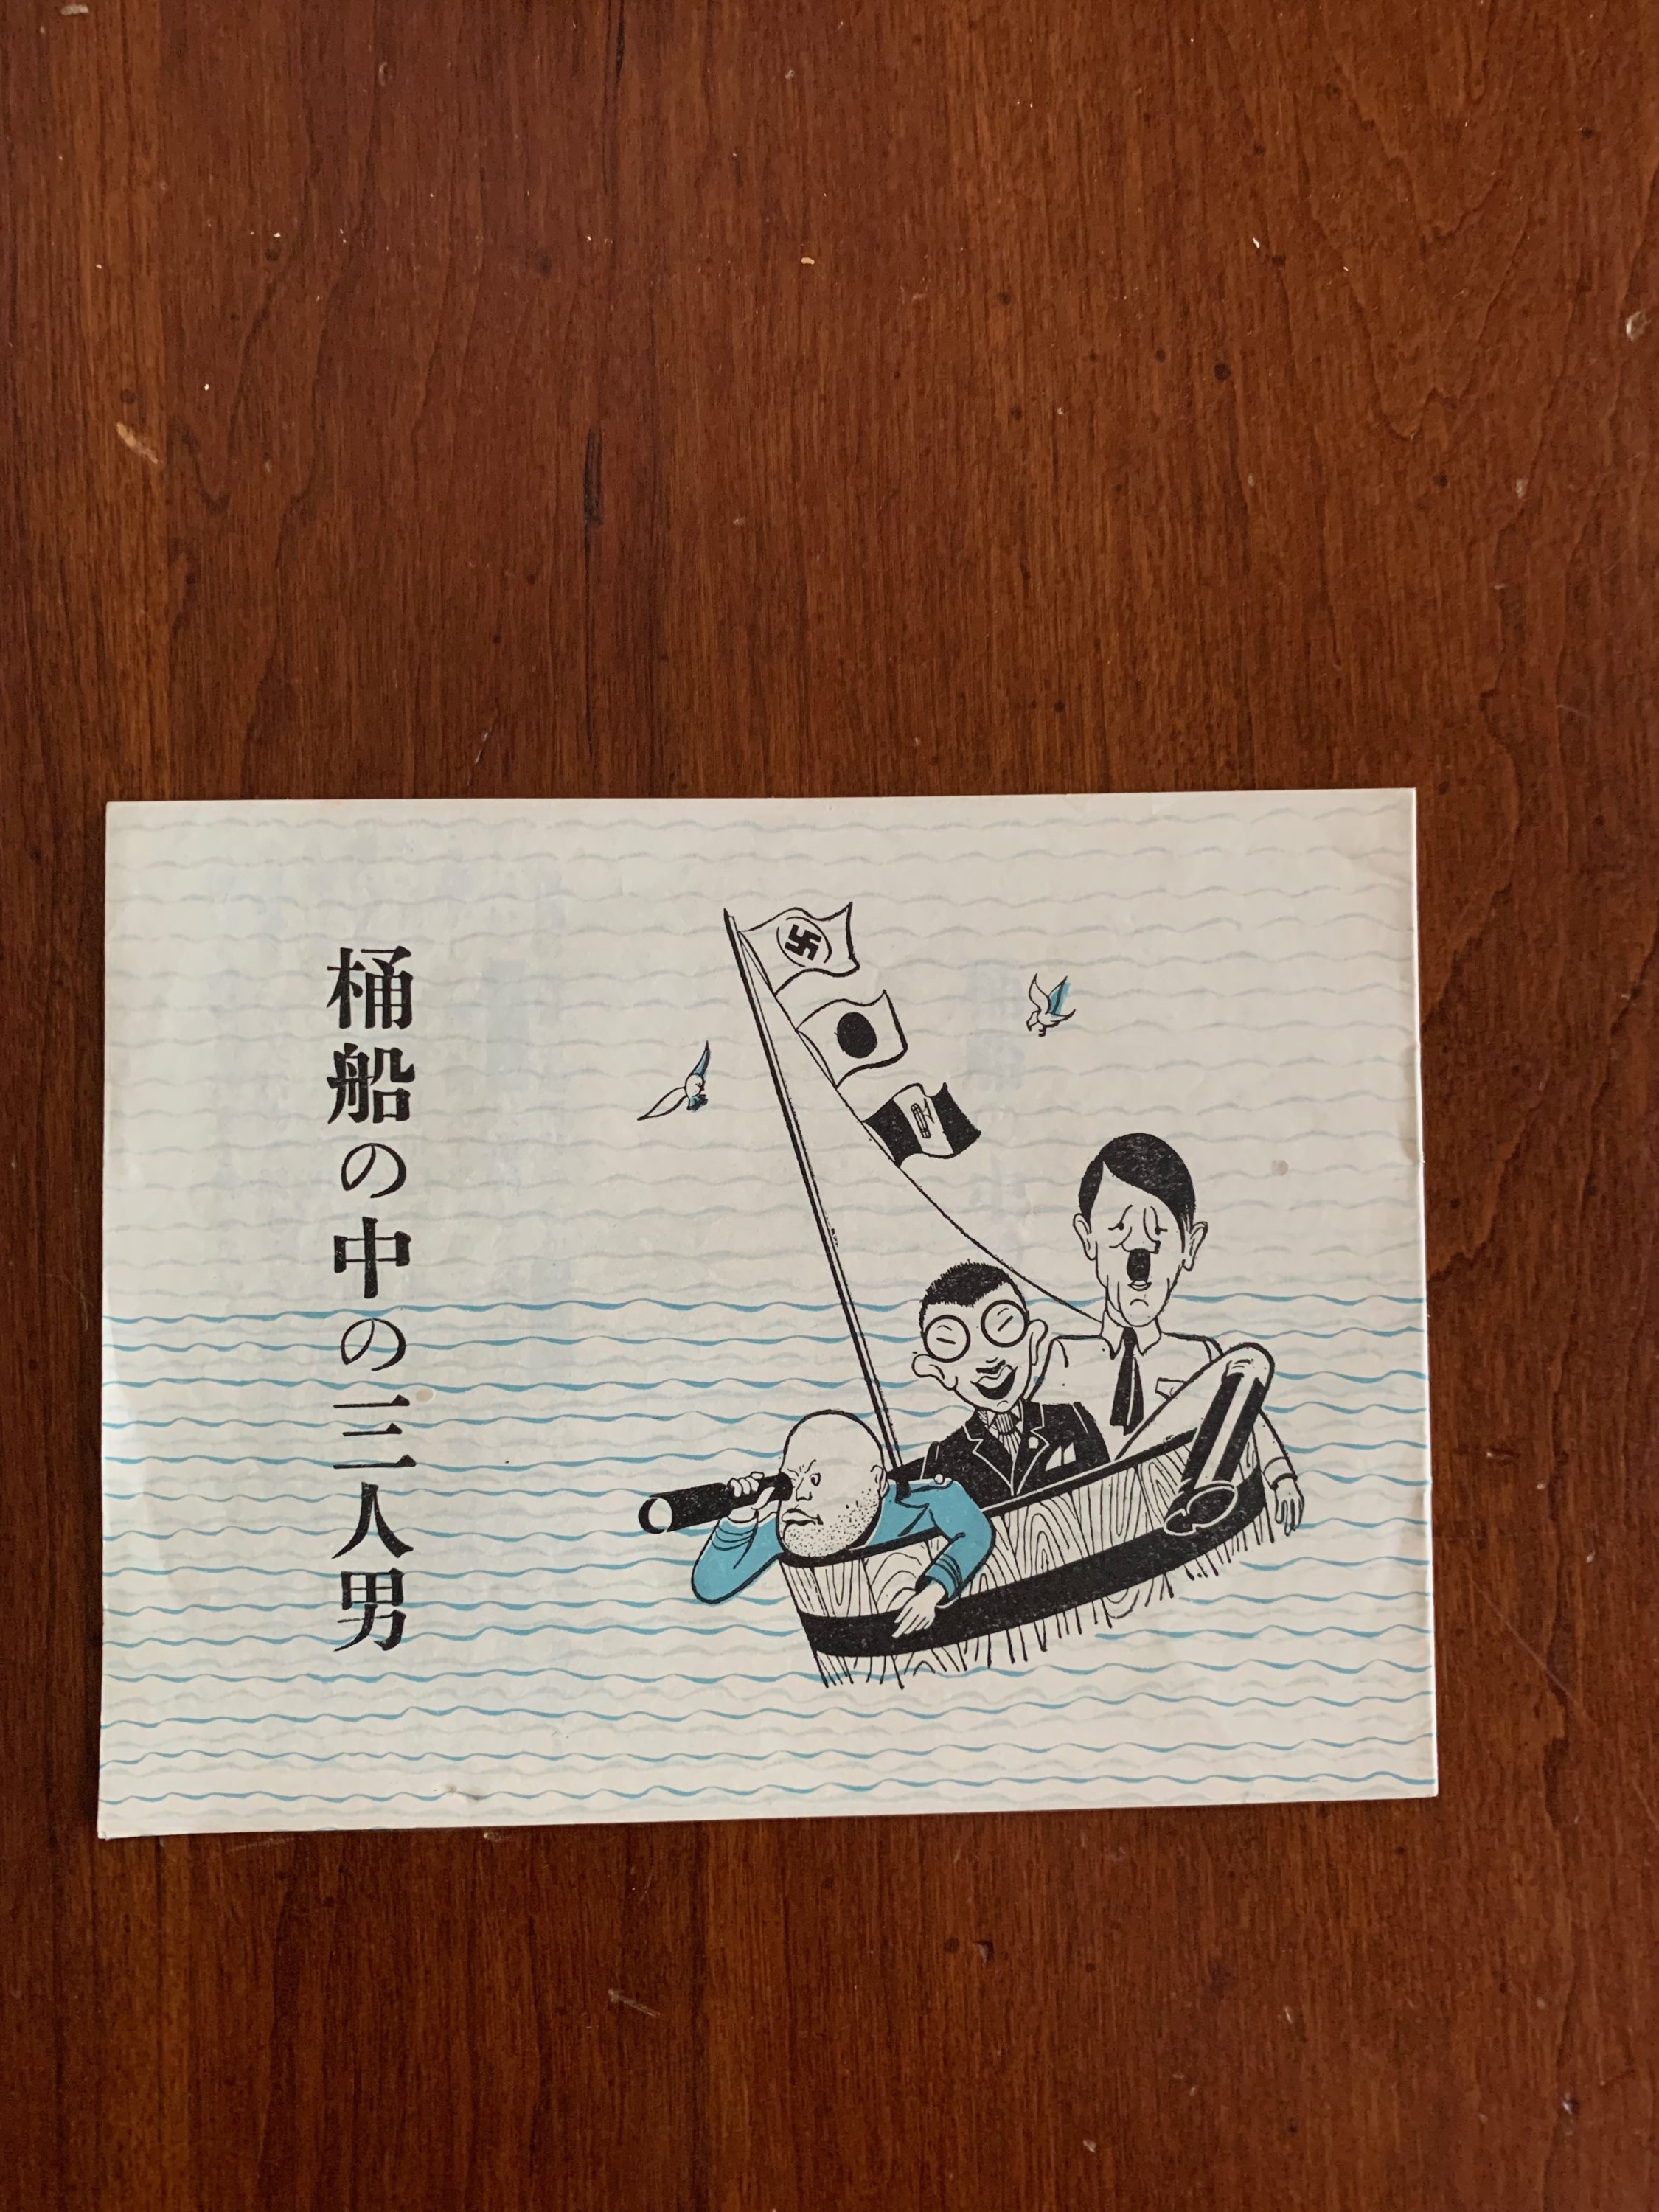 桶船の中の三人男